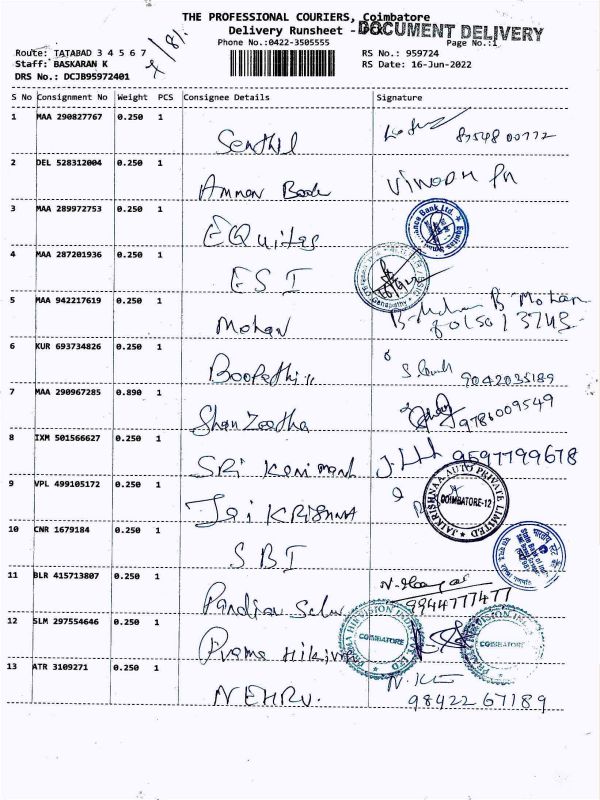 THE PROFESSIONAL COURIERS, Coimbatore
Delivery Runsheet -
DOCUMENT DELIVERY
Phone No.:0422-3505555
Page No.:1
Route: TATABAD 3 4 5 6 7
RS No.: 959724
Staff: BASKARAN K
RS Date: 16-Jun-2022
DRS No.: DCJB95972401
S No Consignment No Weight PCS Consignee Details Signature
1 MAA 290827767 0.250 1 Senthil
2 DEL 528312004 0.250 1 Amman Vinodh
3 MAA 289972753 0.250 1 EQuitas
4 MAA 287201936 0.250 1 ESI
5 MAA 942217619 0.250 1 Mohan B. Mohan
6 KUR 693734826 0.250 1 Boopathi 9042035189
7 MAA 290967285 0.890 1 9786009549
8 IXM 501566627 0.250 1 SRi 9597799678
9 VPL 499105172 0.250 1 Jai KRISHNA
JAIKRISHNAA AUTO PRIVATE LIMITED
COIMBATORE-12
10 CNR 1679184 0.250 1 SBI
11 BLR 415713807 0.250 1 Pandian 9944777477
12 SLM 297554646 0.250 1
COIMBATORE
COIMBATORE
13 ATR 3109271 0.250 1 NEHRU. 98422 67189